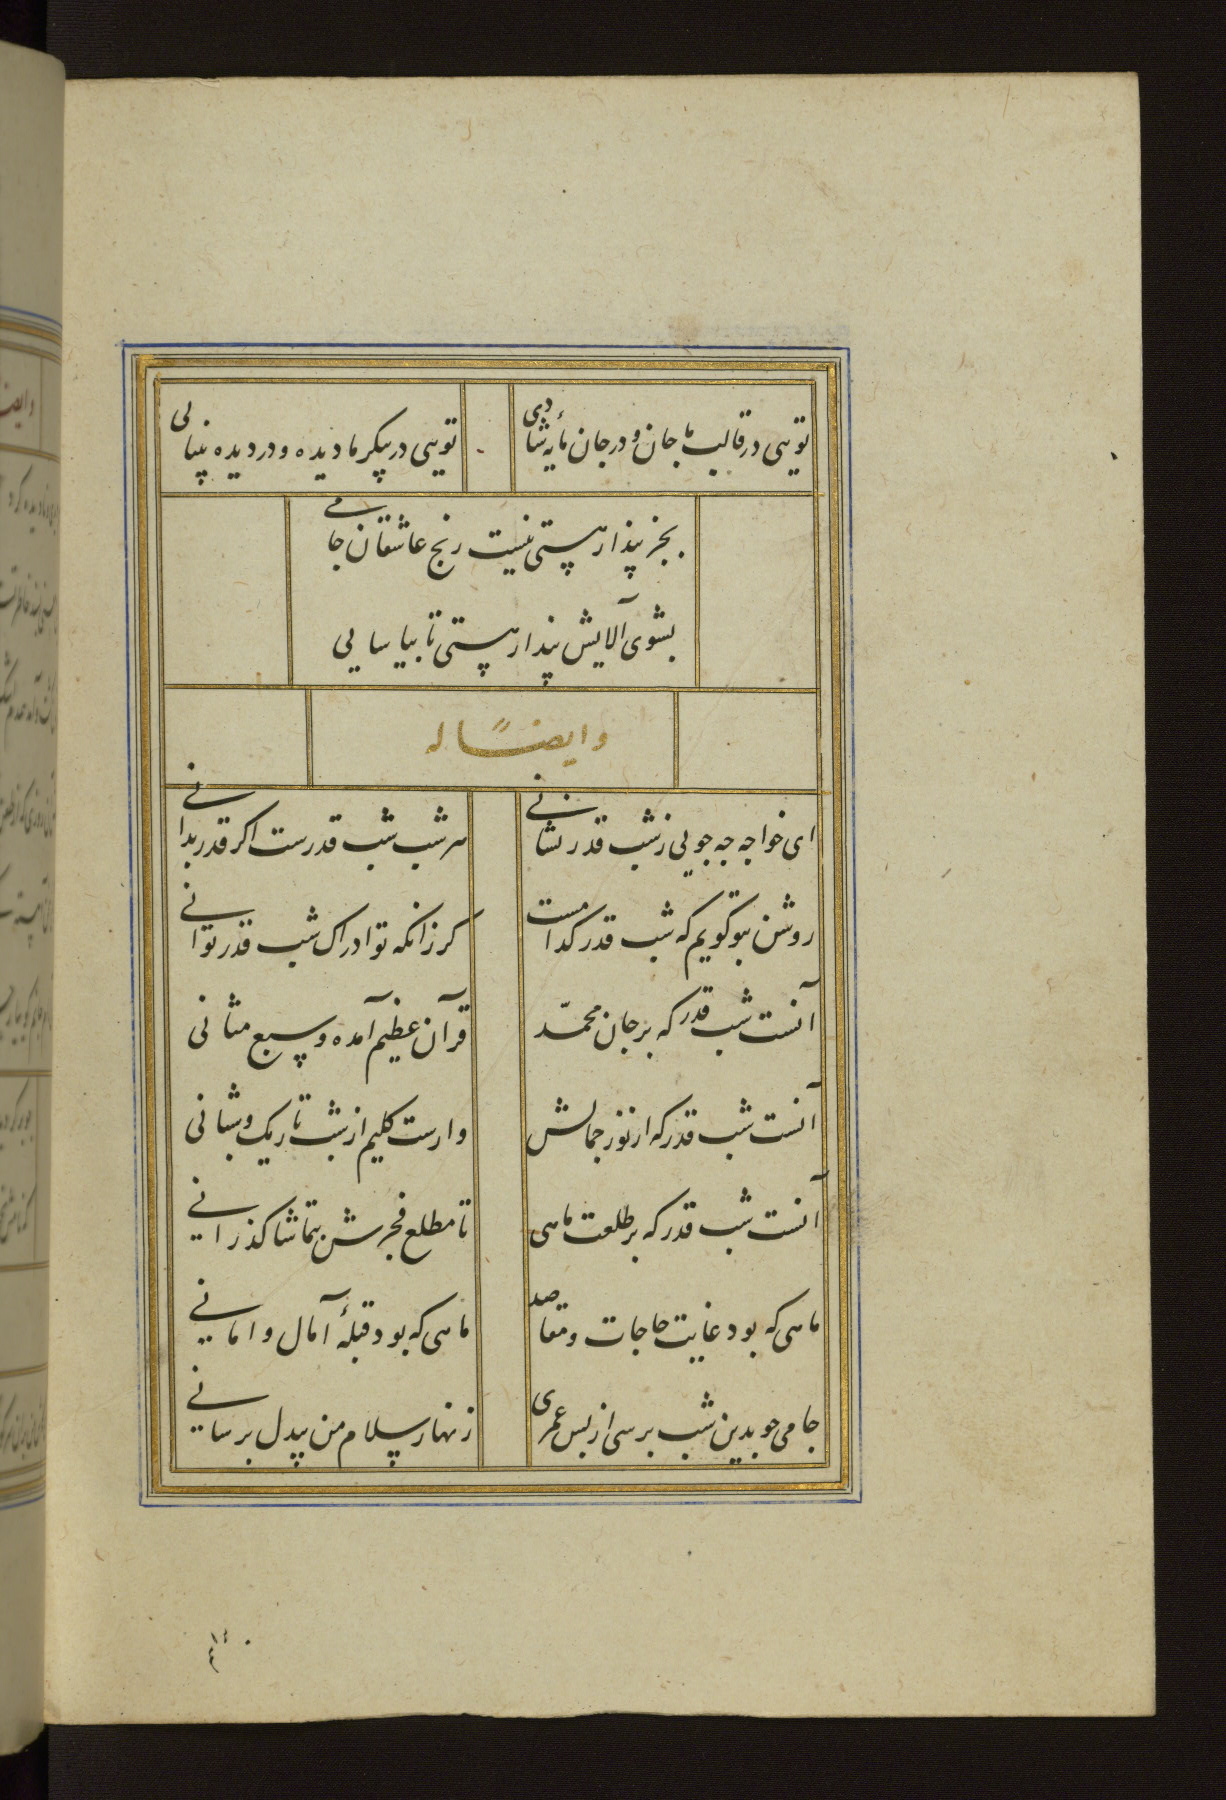 تویی در قالب ما جان و در جان مایهٔ شادی
تویی در پیکر ما دیده و در دیده بینایی
بجز پندار هستی نیست رنج عاشقان جامی
بشوی آلایش پندار هستی تا بیاسایی
وایضاً له
ای خواجه چه جویی ز شب قدر نشانی
هر شب شب قدرست اگر قدر بدانی
روشن بتو گویم که شب قدر کدامست
گر زانکه تو ادراک شب قدر توانی
آنست شب قدر که بر جان محمّد
قرآن عظیم آمده و سبع مثانی
آنست شب قدر که از نور جمالش
وارست کلیم از شب تاریک و شبانی
آنست شب قدر که بر طلعت ماهی
تا مطلع فجرش بتماشا گذرانی
ماهی که بود غایت حاجات و مقاصد
ماهی که بود قبلهٔ آمال و امانی
جامی چو بدین شب برسی از پس عمری
زنهار سلام من بیدل برسانی